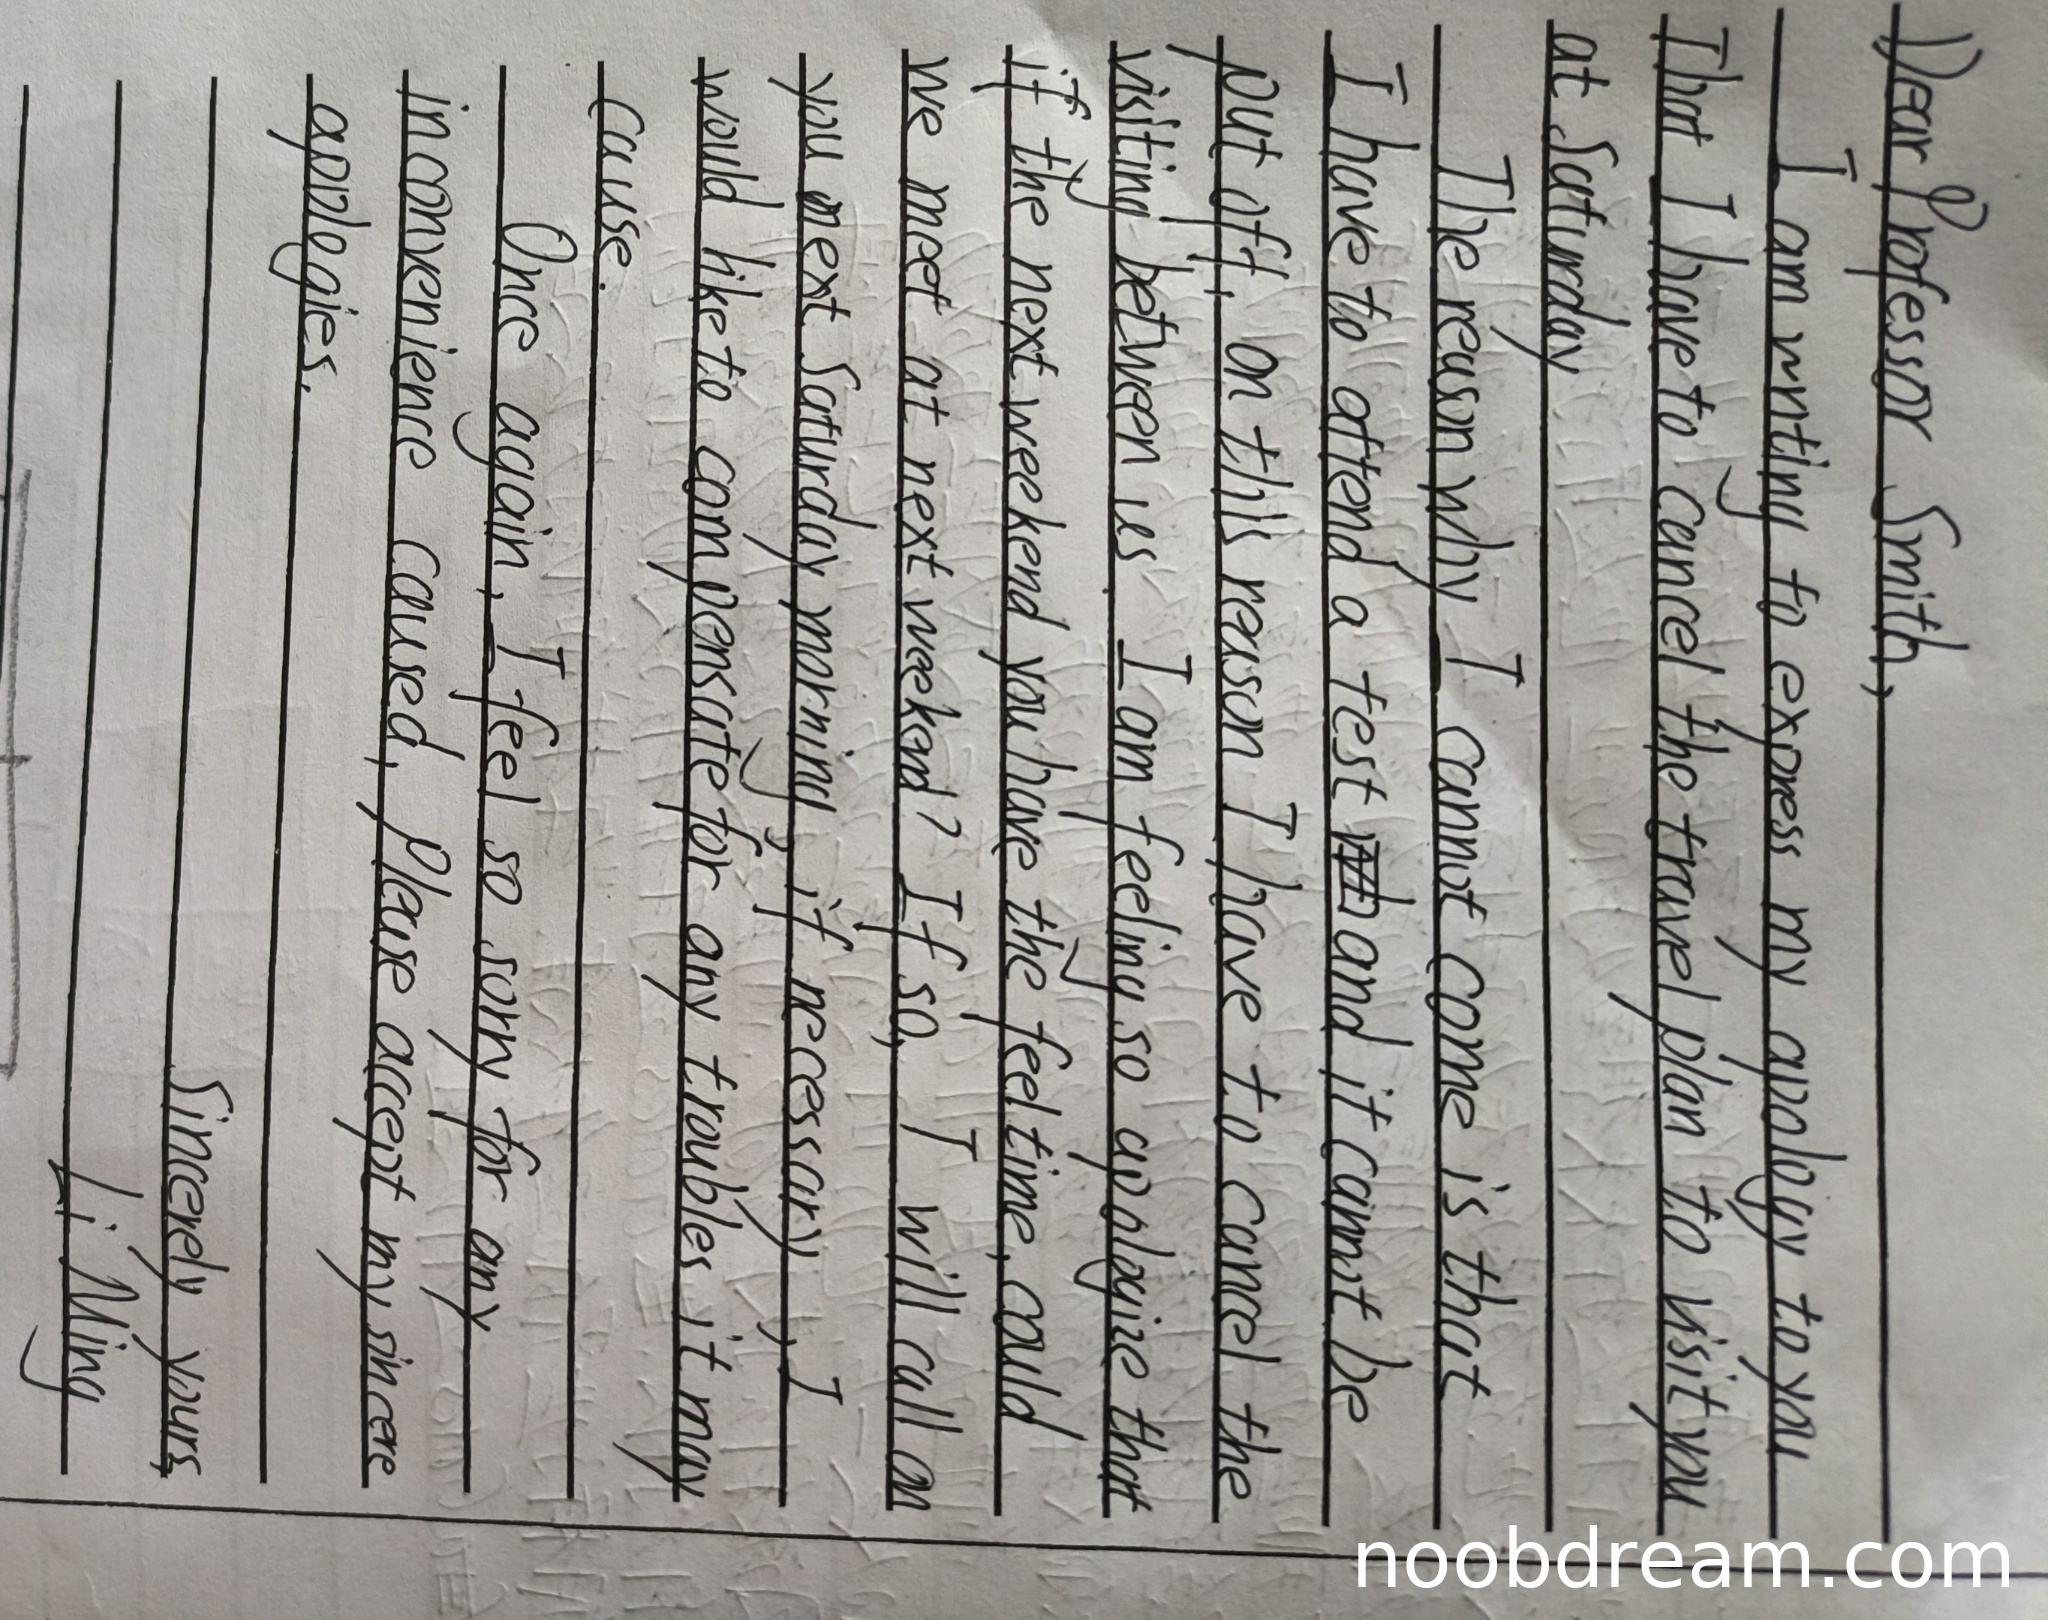 Dear Professor Smith,
I am writing to express my apology to you
That I have to cancel the travel plan to visit you
at Saturday
The reason why I cannot come is that
I have to attend a test and it cannot be
put off, on this reason I have to cancel the
visiting between us. I am feeling so apologize that
if the next weekend you have the feel time, could
we meet at next weekend? If so, I will call on
you next Saturday morning, if necessary, I
would like to compensate for any troubles it may
cause.
Once again, I feel so sorry for any
inconvenience caused, please accept my sincere
apologies.
Sincerely yours,
Li Ming
noobdream.com